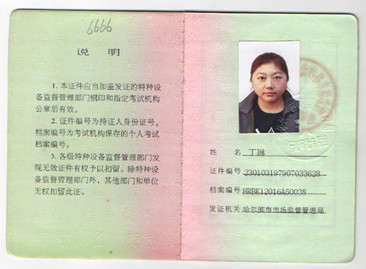 6666
说 明
1. 本证件应当加盖发证的特种设
备监督管理部门钢印和指定考试机构
公章后有效。
2. 证件编号为持证人身份证号。
档案编号为考试机构保存的个人考试
档案编号。
3. 各级特种设备监督管理部门发
现无效证件有权予以扣留。除特种设
备监督管理部门外，其他部门和单位
无权扣留此证。
姓 名 丁琳
证件编号 230103197907033628
档案编号 HRBK12016A50038
发证机关 哈尔滨市市场监督管理局